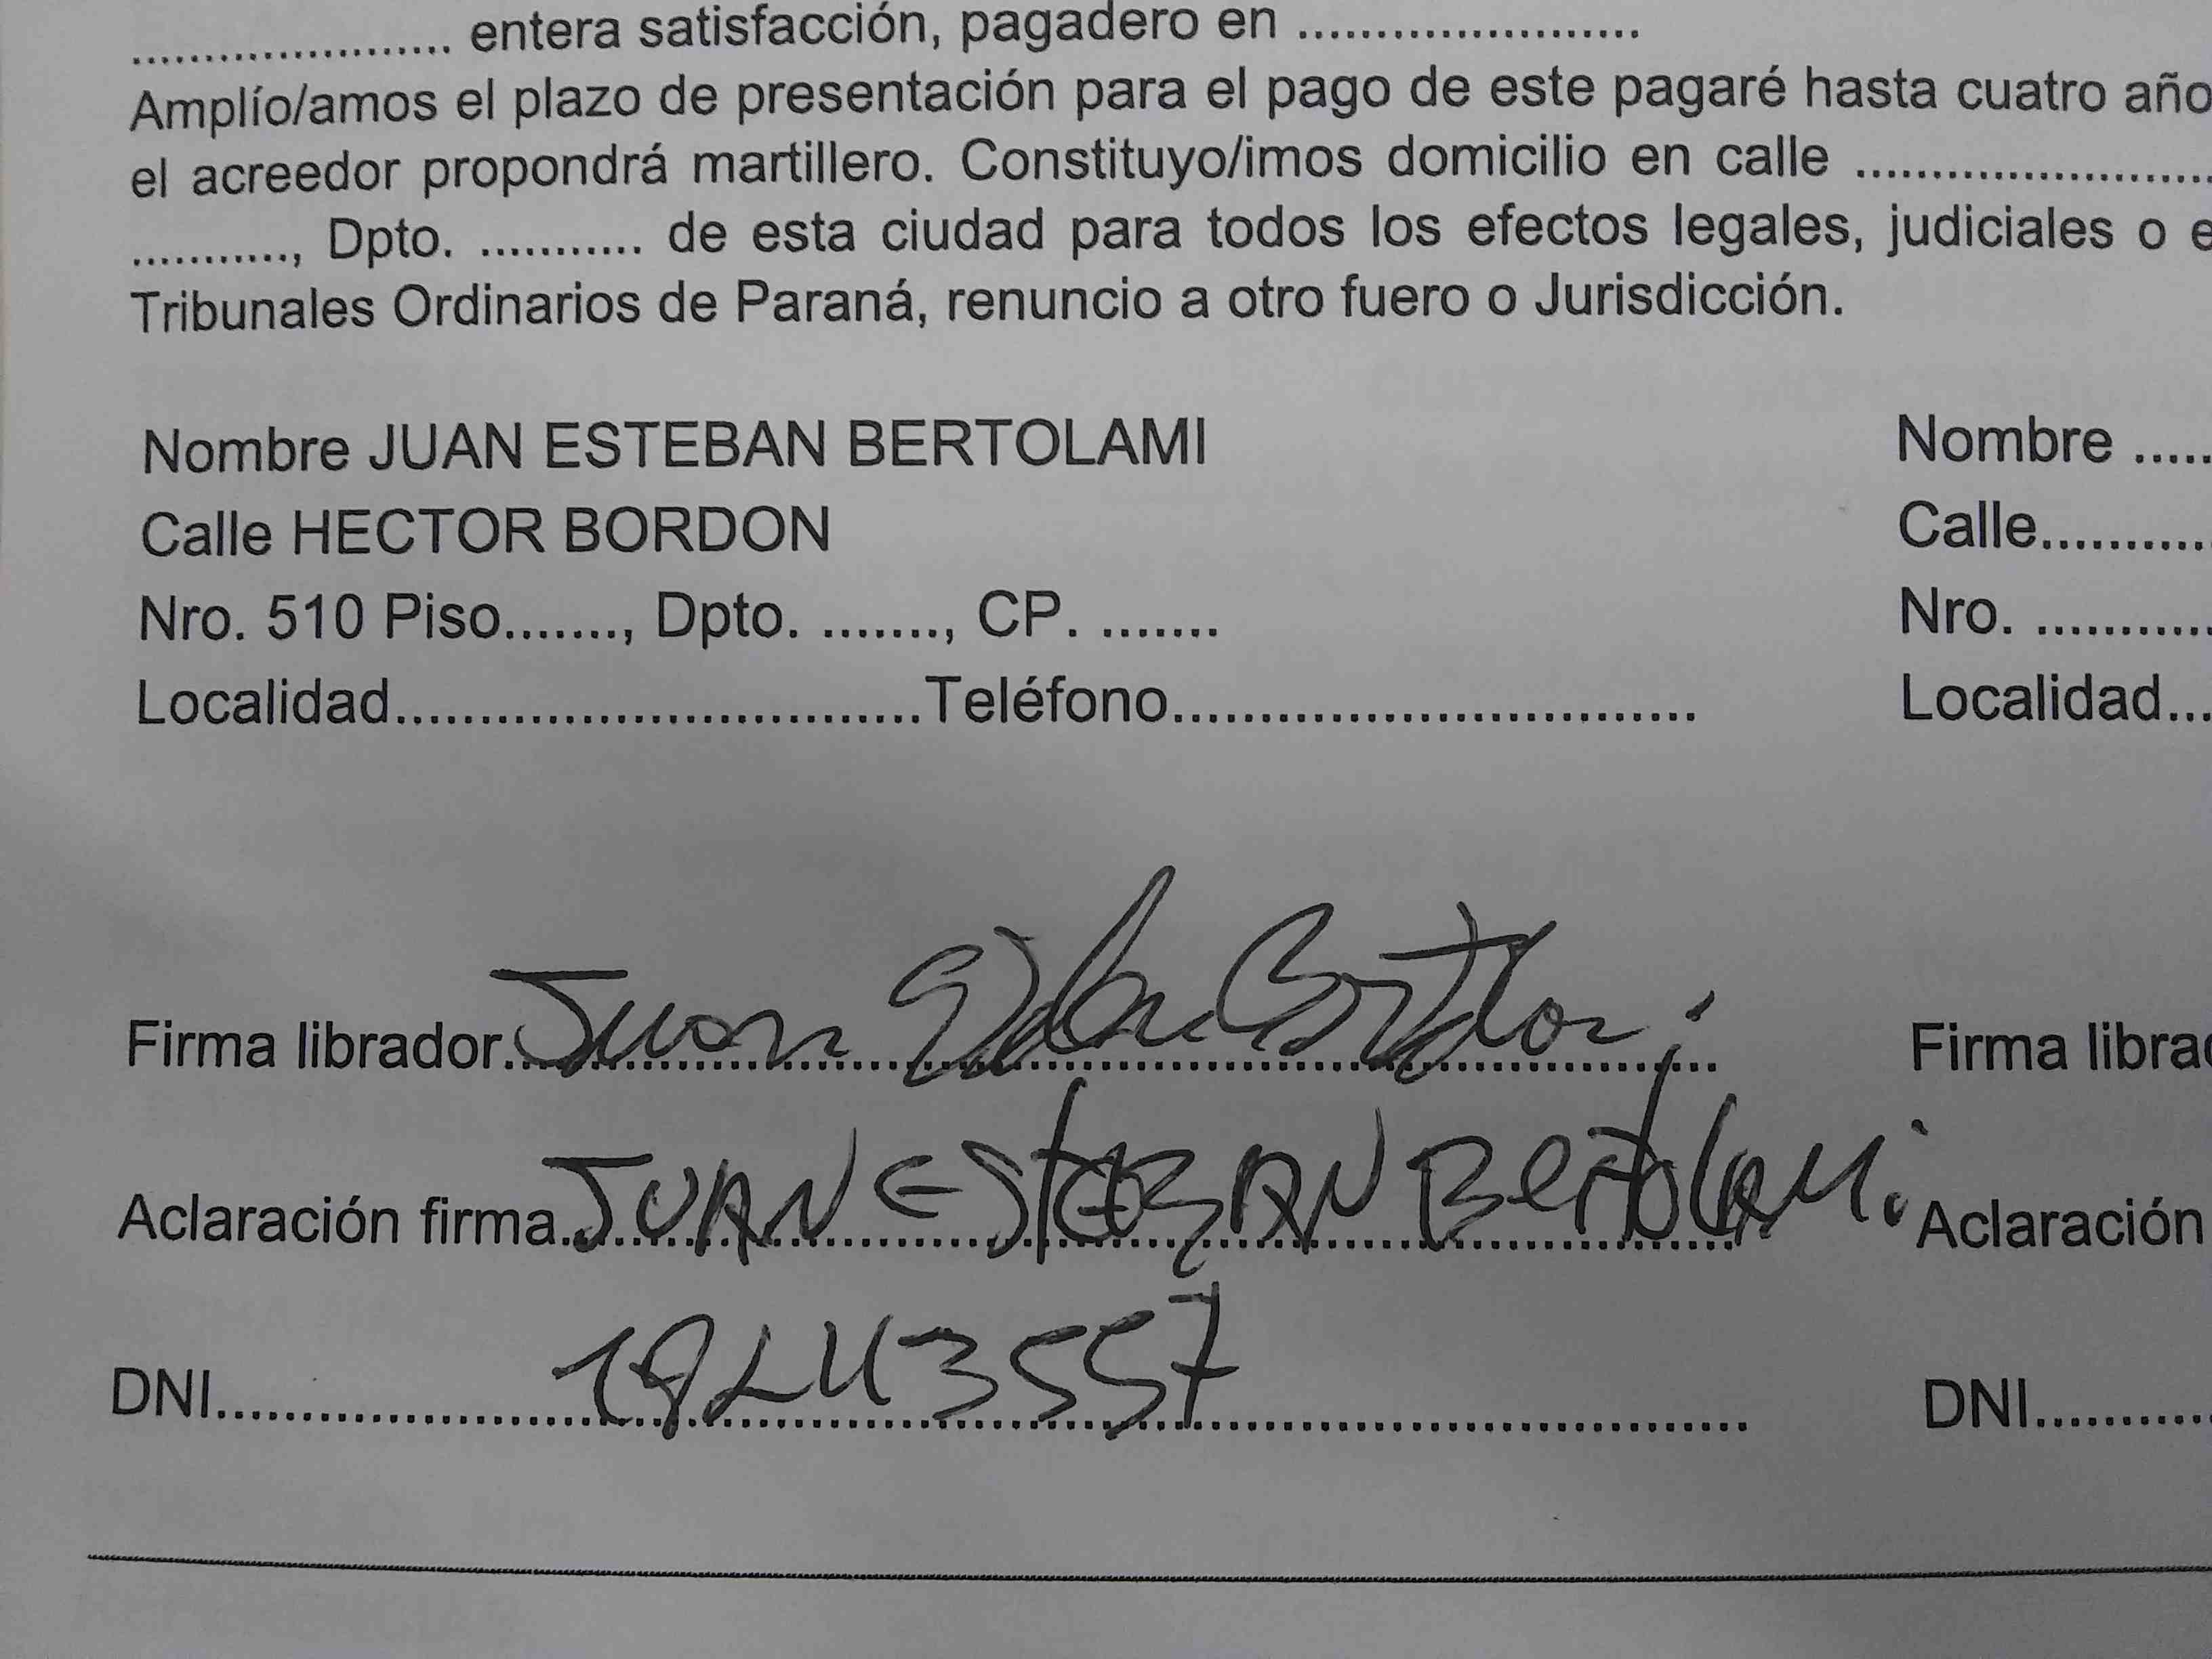 ..................... entera satisfacción, pagadero en ......................
Amplío/amos el plazo de presentación para el pago de este pagaré hasta cuatro año
el acreedor propondrá martillero. Constituyo/imos domicilio en calle .......................
..........., Dpto. ........... de esta ciudad para todos los efectos legales, judiciales o e
Tribunales Ordinarios de Paraná, renuncio a otro fuero o Jurisdicción.
Nombre JUAN ESTEBAN BERTOLAMI
Calle HECTOR BORDON
Nro. 510 Piso......., Dpto. ......., CP. .......
Localidad................................Teléfono................................
Firma librador Juan Esteban Bertolami
Aclaración firma JUAN ESTEBAN BERtOLAMi
DNI
Nombre .....
Calle...........
Nro. ...........
Localidad...
Firma librad
Aclaración
DNI...........